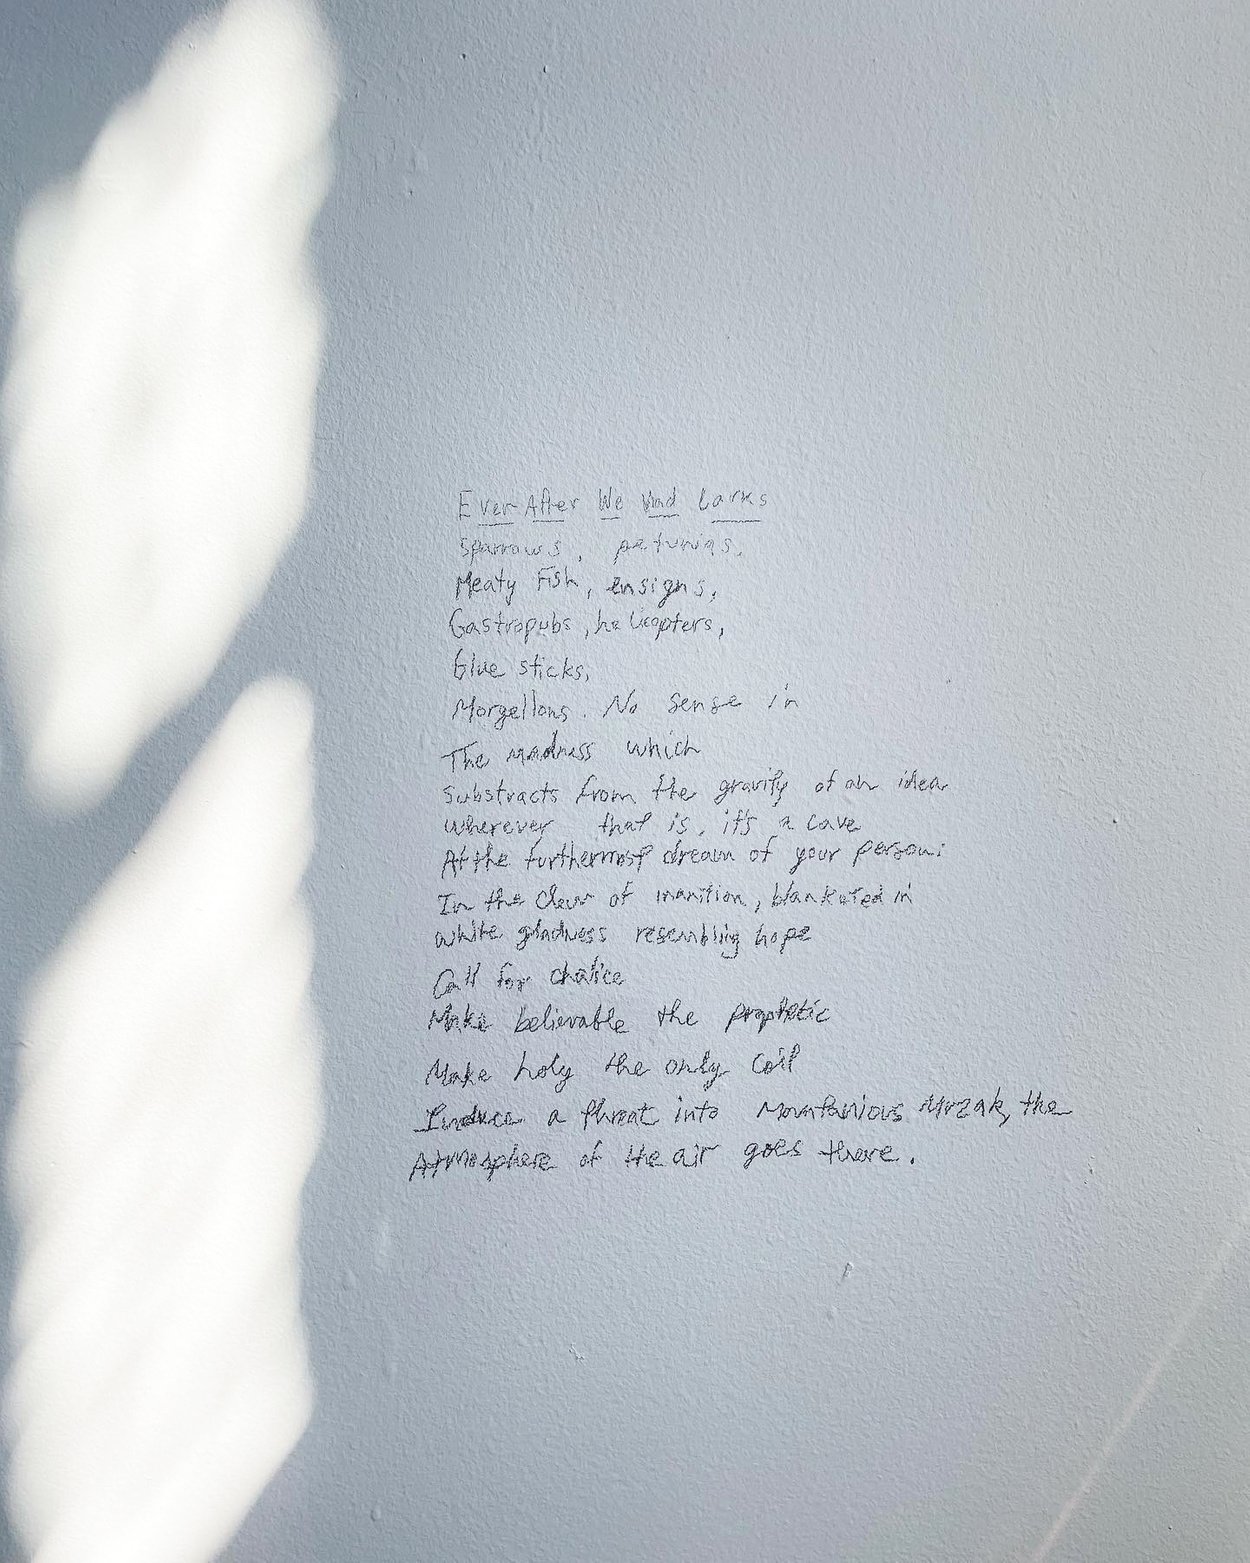 Ever After We Had Larks
Sparrows, petunias,
Meaty Fish, ensigns,
Gastropubs, helicopters,
Glue sticks,
Morgellons. No sense in
The madness which
Substracts from the gravity of an idea
wherever that is, it's a cave
At the furthermost dream of your person:
In the clew of inanition, blanketed in
white gladness resembling hope
Call for chalice
Make believable the prophetic
Make holy the only coil
Induce a threat into Mountanious Mrzak, the
Atmosphere of the air goes there.